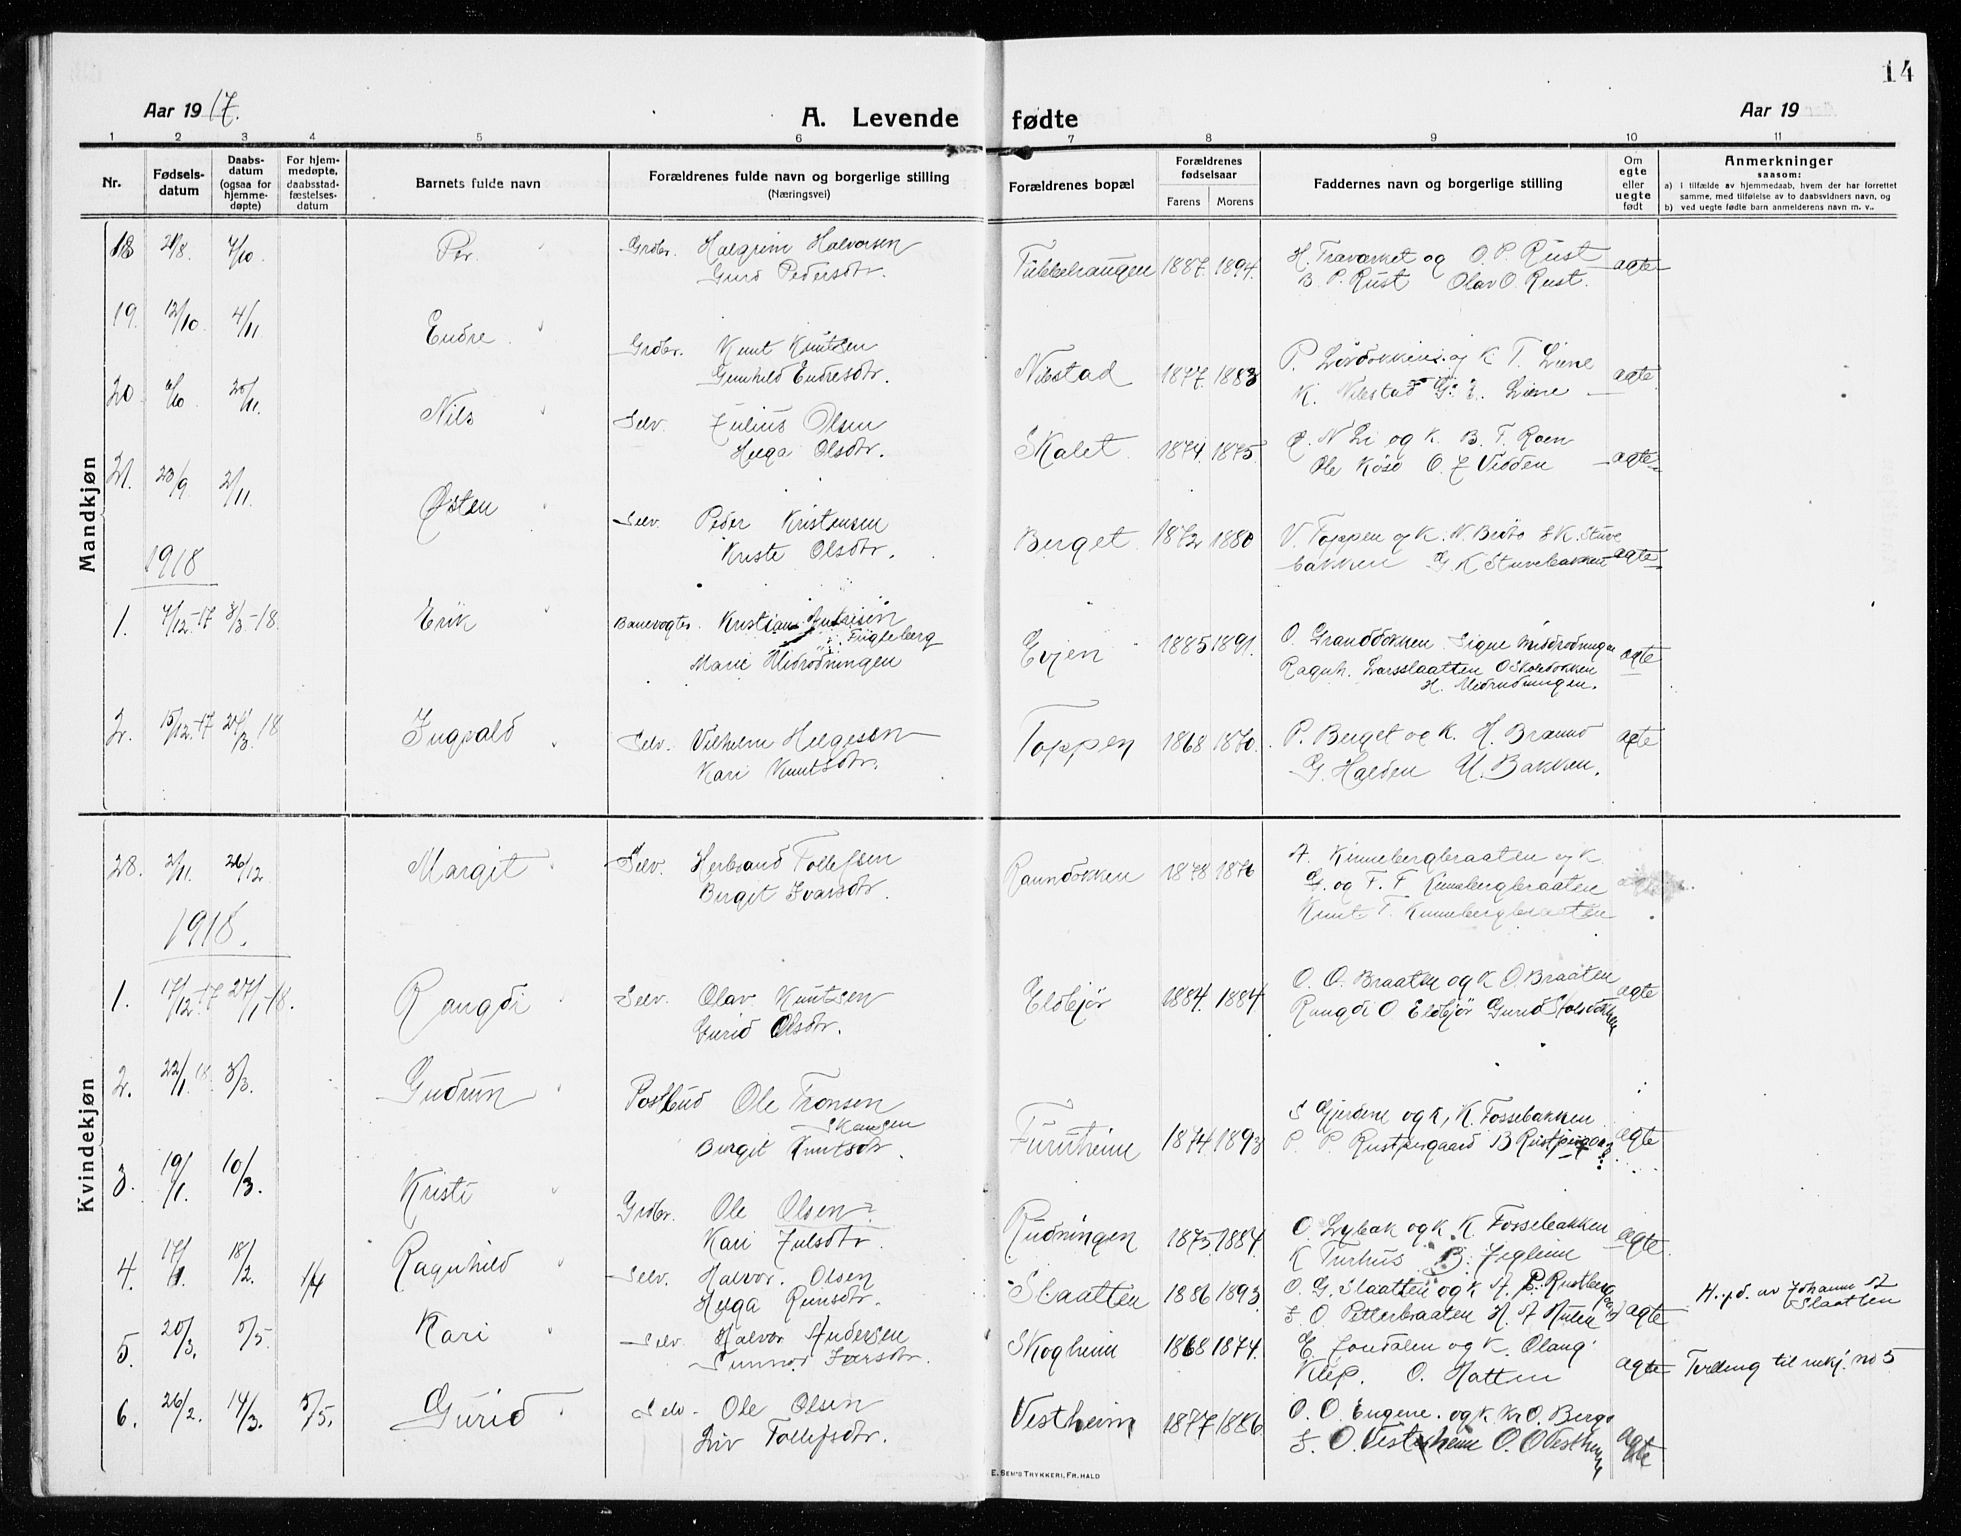 14
Aar 1917.
A. Levende fødte
Aar 19
1 2 3 4 5 6 7 8 9 10 11
Nr.
Fødsels-
datum
Daabs-
datum
(ogsaa for
hjemme-
døpte)
For hjem-
medøpte,
daabsstad-
fæstelses-
datum
Barnets fulde navn
Forældrenes fulde navn og borgerlige stilling
(Næringsvei)
Forældrenes bopæl
Forældrenes
fødselsaar
Farens Morens
Faddernes navn og borgerlige stilling
Om
egte
eller
uegte
født
Anmerkninger
saasom:
a) i tilfælde av hjemmedaab, hvem der har forrettet
samme, med tilføielse av to daabsvidners navn, og
b) ved uegte fødte barn anmelderens navn m. v..
Mandkjøn
18 /8 /10 Per. Grdbr. Halgrim Halvorsen
Gurid Pedersdtr.
Tubbehaugen 1887 1894 H. Travarket og O. P. Rust
B. P. Rust Olav O. Rust. agte
19. 12/10 4/11 Endre Grdbr. Knut Knutsen
Gunhild Endresdtr.
Nibstad 1877. 1883 P. og K T. Liene
K. Nibstad G. E. Liene agte
20 /10 20/11. Nils Selv. Julius Olsen
Helga Olsdtr.
Skalet 1874. 1875. N Li og K. B. T. Roen
Ole O. J Vidden agte
21. 20/9 2/11 Østen Selv. Peder Kristensen
Kriste Olsdtr.
Berget 1872 1880 V. Toppen og K. N. K. Stuve
bakken G K Stuvebakken agte
1918
1. 7/12-17 3/3-18. Erik Banevogter. Kristian Fugleberg
Marie Midrudningen
Evjen 1885 1891. O Granddokken. Signe Middrudningen
Ragnh. Larsslaatten O Skoledokken
H. Midrudningen. agte
2. 15/12-17 /3-18 Ingvald Selv. Vilhelm Helgesen
Kari Knutsdtr.
Toppen 1868 1870. P. Berget og K. H. Brænd
G. Halden U. Bakken. agte
Kvindekjøn
28. 2/11. 26/12 Margit Selv. Herbrand Tollefsen
Birget Ivarsdtr.
Raundokken 1878 1876 A. Kinnebergbraaten og K.
G. og T. T Kinnebergbraaten
Knut T. Kinnebergbraaten
1918.
1. 17/12-17 27/1-18. Rangdi Selv. Olav Knutsen
Gurid Olsdtr.
Eldbjør 1884. 1884 O. O. Braaten og K O Braaten
Rangdi O Eldbjør Gurid Stolsdokken agte
2. 22/1 18 3/3. Gudrun Postbud Ole Tronsen
Skansen
Birgit Knutsdtr.
Furuheim 1874 1893 S Gjerdene og K, K. Fossebakken
P. P. Rustpergaard B Rustperg agte
3. 19/1. 10/3. Kristi Grdbr. Ole Olsen.
Kari Julsdtr.
Rudningen 1875. 1884. O. Lybak og K. K. Fossebakken
K Turhus B. Jegleim agte
4. 17/1. 18/2. 1/4 Ragnhild Selv. Halvor. Olsen
Helga Reinsdtr.
Slaatten 1886 1893 O. G. Slaatten og K A. E. Rustberg
S. O. Petterbraaten H. A Huten agte H.j.d. av Johannes
Slaatten
5. 20/3. 5/5. Kari Selv. Halvor Andersen
Gunnor Iversdtr.
Skogheim 1868 1874. E. Jordalen og K. Olang
Klep. O. Hatten agte Tvilling til mkj. no 5
6. 26/2. 14/3. 5/5. Gurid Selv. Ole Olsen
Liv Tollefsdtr.
Vestheim 1877 1886 O. O. Eugene. og K. Kr. O. Berg.
S. O. Vestheim O. O Vestheim agte
E. SEM'S TRYKKERI, FR.HALD